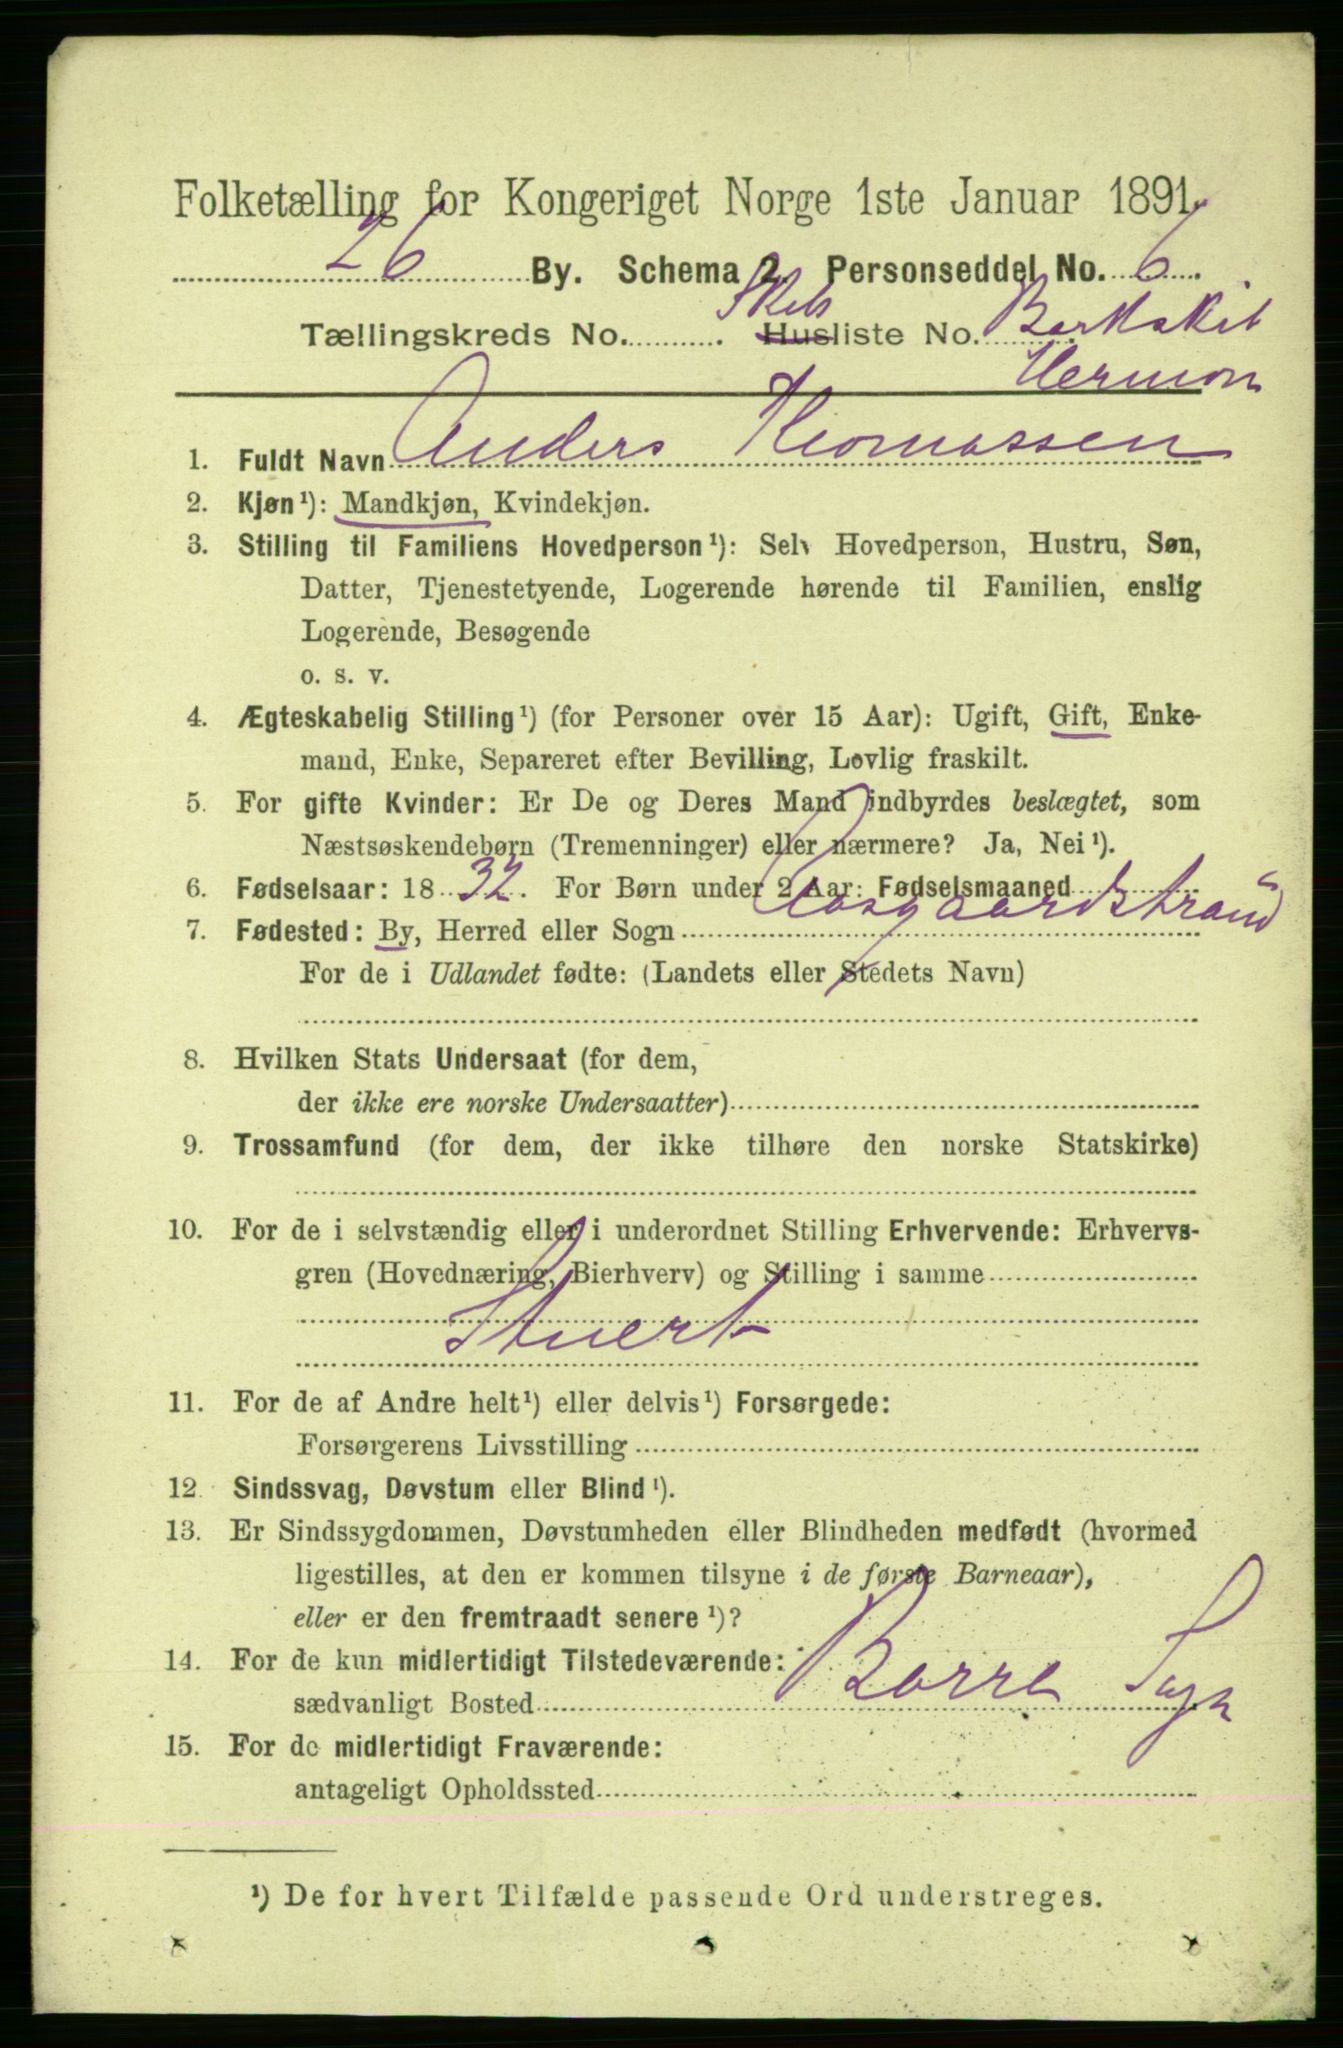 Folketælling for Kongeriget Norge 1ste Januar 1891.
26 By. Schema 2. Personseddel No. 6.
Tællingskreds No. . Skibs Husliste No. Barkskib
Hermon
1. Fuldt Navn Anders Thomassen
2. Kjøn¹): Mandkjøn, Kvindekjøn.
3. Stilling til Familiens Hovedperson¹): Selv Hovedperson, Hustru, Søn,
Datter, Tjenestetyende, Logerende hørende til Familien, enslig
Logerende, Besøgende
o. s. v.
4. Ægteskabelig Stilling¹) (for Personer over 15 Aar): Ugift, Gift, Enke-
mand, Enke, Separeret efter Bevilling, Lovlig fraskilt.
5. For gifte Kvinder: Er De og Deres Mand indbyrdes beslægtet, som
Næstsøskendebørn (Tremenninger) eller nærmere? Ja, Nei¹).
6. Fødselsaar: 18 32. For Børn under 2 Aar: Fødselsmaaned
7. Fødested: By, Herred eller Sogn Aasgaardstrand
For de i Udlandet fødte: (Landets eller Stedets Navn)
8. Hvilken Stats Undersaat (for dem,
der ikke ere norske Undersaatter)
9. Trossamfund (for dem, der ikke tilhøre den norske Statskirke)
10. For de i selvstændig eller i underordnet Stilling Erhvervende: Erhvervs-
gren (Hovednæring, Bierhverv) og Stilling i samme
Stuert
11. For de af Andre helt¹) eller delvis¹) Forsørgede:
Forsørgerens Livsstilling
12. Sindssvag, Døvstum eller Blind¹).
13. Er Sindssygdommen, Døvstumheden eller Blindheden medfødt (hvormed
ligestilles, at den er kommen tilsyne i de første Barneaar),
eller er den fremtraadt senere¹)?
14. For de kun midlertidigt Tilstedeværende:
sædvanligt Bosted Borre Sogn
15. For de midlertidigt Fraværende:
antageligt Opholdssted
¹) De for hvert Tilfælde passende Ord understreges.